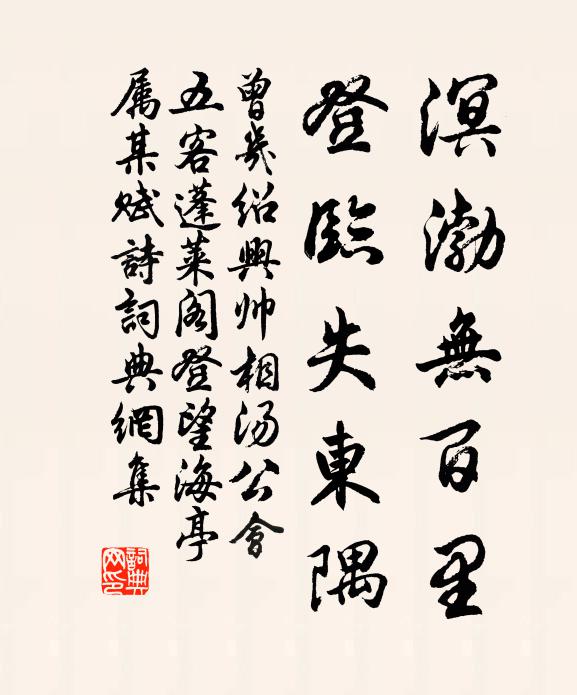 溟渤無百里
登臨失東隅
曾幾紹興帅相汤公會
五客蓬萊阁登望海亭
属某赋詩詞典網集
詞典
网印